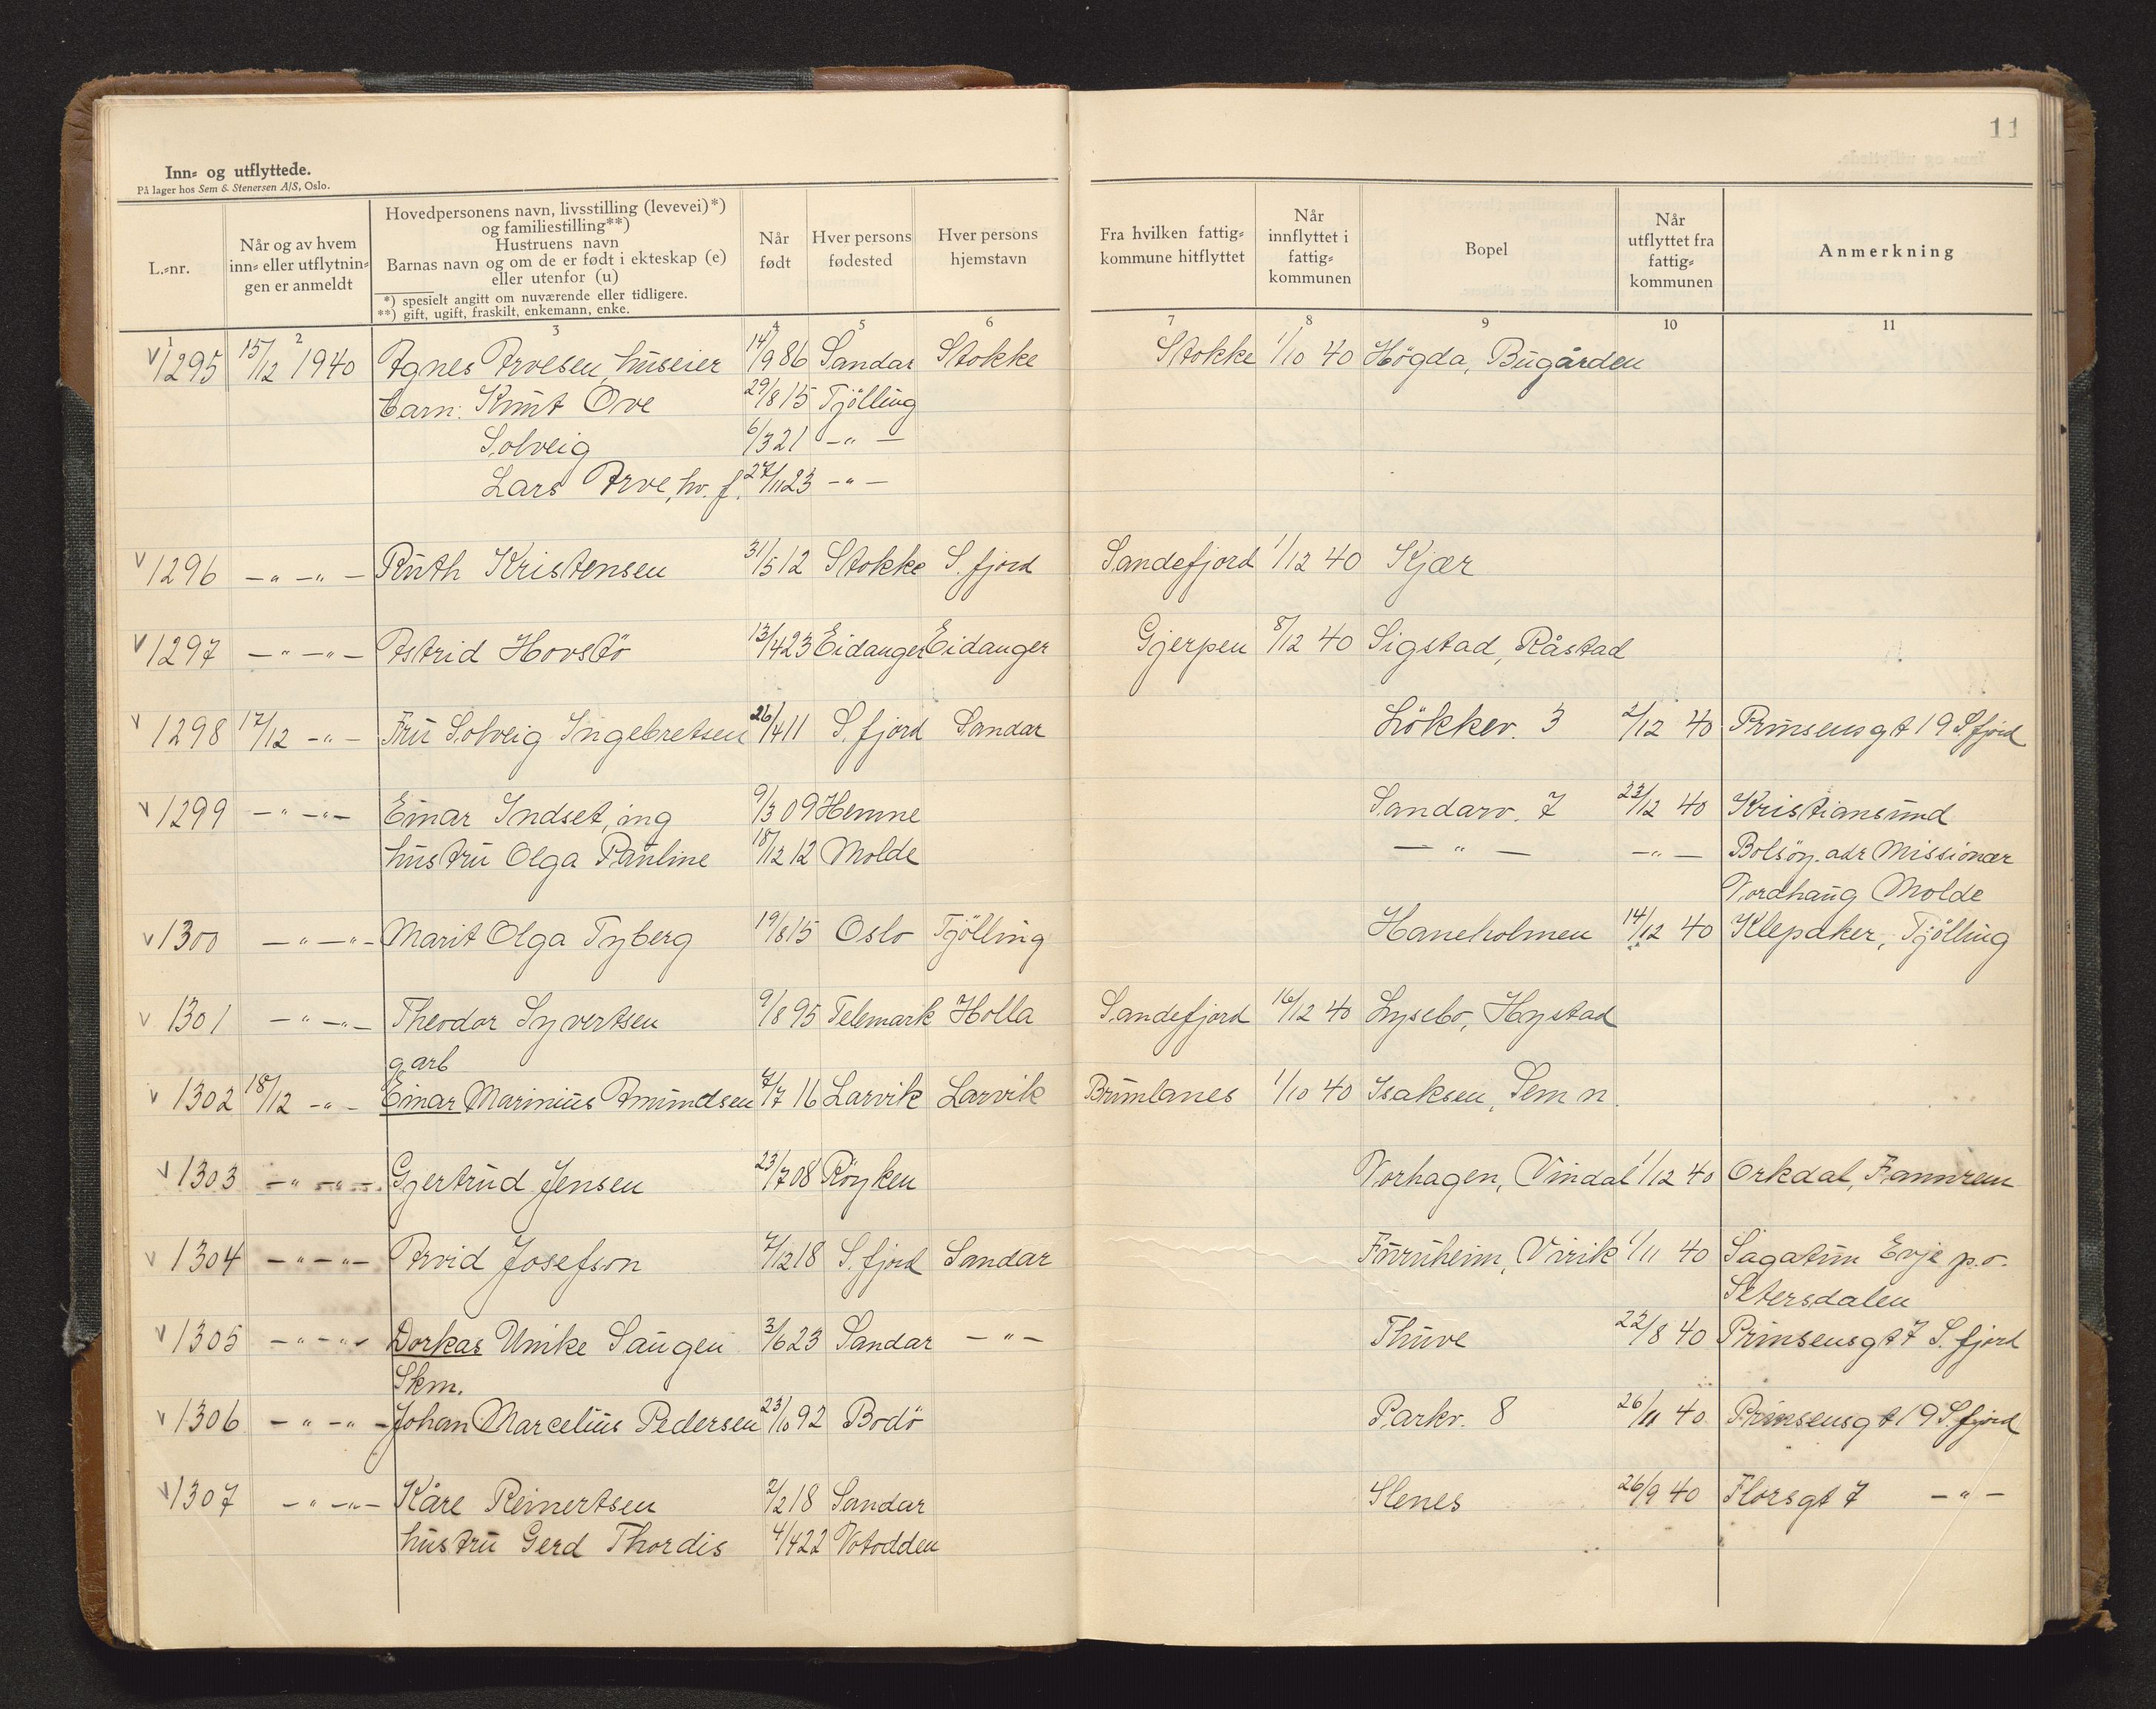 11
Inn- og utflyttede.
På lager hos Sem & Stenersen A/S, Oslo.
L.-nr.
Når og av hvem
inn- eller utflytnin-
gen er anmeldt
Hovedpersonens navn, livsstilling (levevei)*)
og familiestilling**)
Hustruens navn
Barnas navn og om de er født i ekteskap (e)
eller utenfor (u)
*) spesielt angitt om nuværende eller tidligere.
**) gift, ugift, fraskilt, enkemann, enke.
Når
født
Hver persons
fødested
Hver persons
hjemstavn
Fra hvilken fattig-
kommune hitflyttet
Når
innflyttet i
fattig-
kommunen
Bopel
Når
utflyttet fra
fattig-
kommunen
Anmerkning
1 2 3 4 5 6 7 8 9 10 11
V 1295 15/12 1940 Agnes Arvesen, huseier 14/9 86 Sandar Stokke Stokke 1/10 40 Högda, Bugården
barn: Knut Ove 29/8 15 Tjölling
Solveig 6/3 21 -"-
Lars Arve, hv. f. 27/11 23 -"-
V 1296 -"- -"- Ruth Kristensen 31/5 12 Stokke S.fjord Sandefjord 1/12 40 Kjær
V 1297 -"- -"- Astrid Hovstö 13/4 23 Eidanger Eidanger Gjerpen 8/12 40 Sigstad, Råstad
V 1298 17/12 -"- Fru Solveig Ingebretsen 26/4 11 S.fjord Sandar Lökkev. 3 2/12 40 Prinsensgt 19 S.fjord
V 1299 -"- -"- Einar Indset, ing 9/3 09 Hemne Sandarv. 7 23/12 40 Kristiansund
hustru Olga Pauline 18/12 12 Molde -"- -"- Bolsöy. adr Missionær
Nordhaug Molde
V 1300 -"- -"- Marit Olga Tyberg 19/8 15 Oslo Tjölling Haneholmen 14/12 40 Klepaker, Tjölling
V 1301 -"- -"- Theodor Syvertsen 9/8 95 Telemark Holla Sandefjord 16/12 40 Lysebo, Hystad
g arb
V 1302 18/12 -"- Einar Marinius Amundsen 7/7 16 Larvik Larvik Brunlanes 1/10 40 Isaksen, Sem n.
V 1303 -"- -"- Gjertrud Jensen 23/7 08 Röyken Norhagen, Vindal 1/12 40 Orkdal, Fannrem
V 1304 -"- -"- Arvid Josefson 7/12 18 S.fjord Sandar Furuheim, Virik 1/11 40 Sagatun Evje p.o.
Setersdalen
V 1305 -"- -"- Dorkas Unike Saugen 3/6 23 Sandar -"- Thuve 22/8 40 Prinsensgt 7 S.fjord
Skm.
V 1306 -"- -"- Johan Marcelius Pedersen 23/10 92 Bodö Parkv. 8 26/11 40 Prinsensgt 19 S.fjord
V 1307 -"- -"- Kåre Reinertsen 2/2 18 Sandar Slenes 26/9 40 Florsgt 7 -"-
hustru Gerd Thordis 4/4 22 Notodden